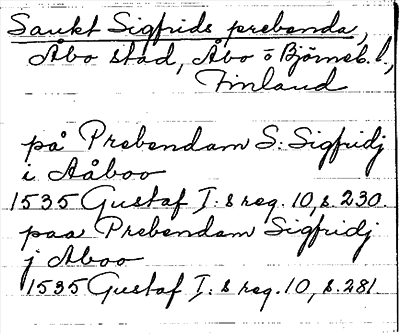 Sankt Sigfrids prebenda,
Åbo stad, Åbo o Björneb. l.,
Finland
på Prebendam S: Sigfridj
i Aåboo
1535 Gustaf I: s reg. 10, s. 230.
paa Prebendam Sigfridj
j Aboo
1535 Gustaf I: s reg. 10, s. 281.